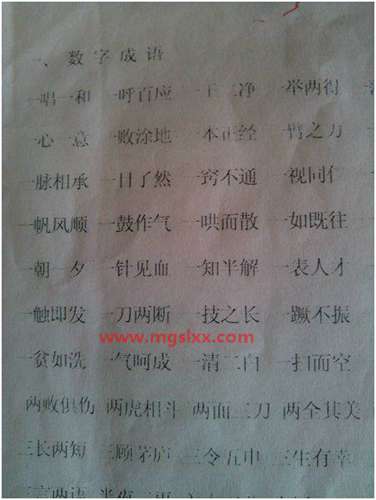 一、数字成语
一唱一和 一呼百应 一干二净 一举两得
一心一意 一败涂地 一本正经 一臂之力
一脉相承 一目了然 一窍不通 一视同仁
一帆风顺 一鼓作气 一哄而散 一如既往
一朝一夕 一针见血 一知半解 一表人才
一触即发 一刀两断 一技之长 一蹶不振
www.mgslxx.com
一贫如洗 一气呵成 一清二白 一扫而空
两败俱伤 两虎相斗 两面三刀 两全其美
三长两短 三顾茅庐 三令五申 三生有幸
三言两语